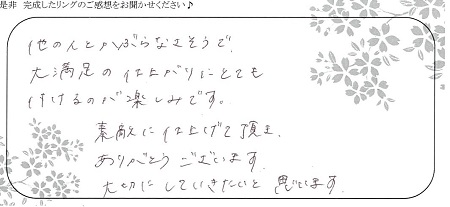 是非 完成したリングのご感想をお聞かせください♪
他の人とかぶらなさそうで、
大満足の仕上がりにとても
付けるのが楽しみです。
素敵に仕上げて頂き、
ありがとうございます。
大切にしていきたいと思います。